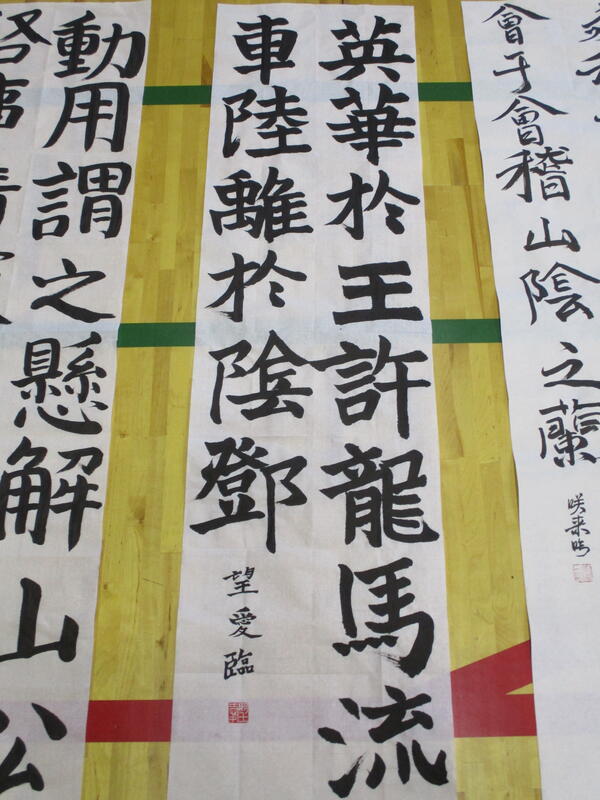 會于會稽山陰之蘭
咲来臨
英華於王許龍馬流
車陸離於陰鄧
望愛臨
動用謂之懸解山公